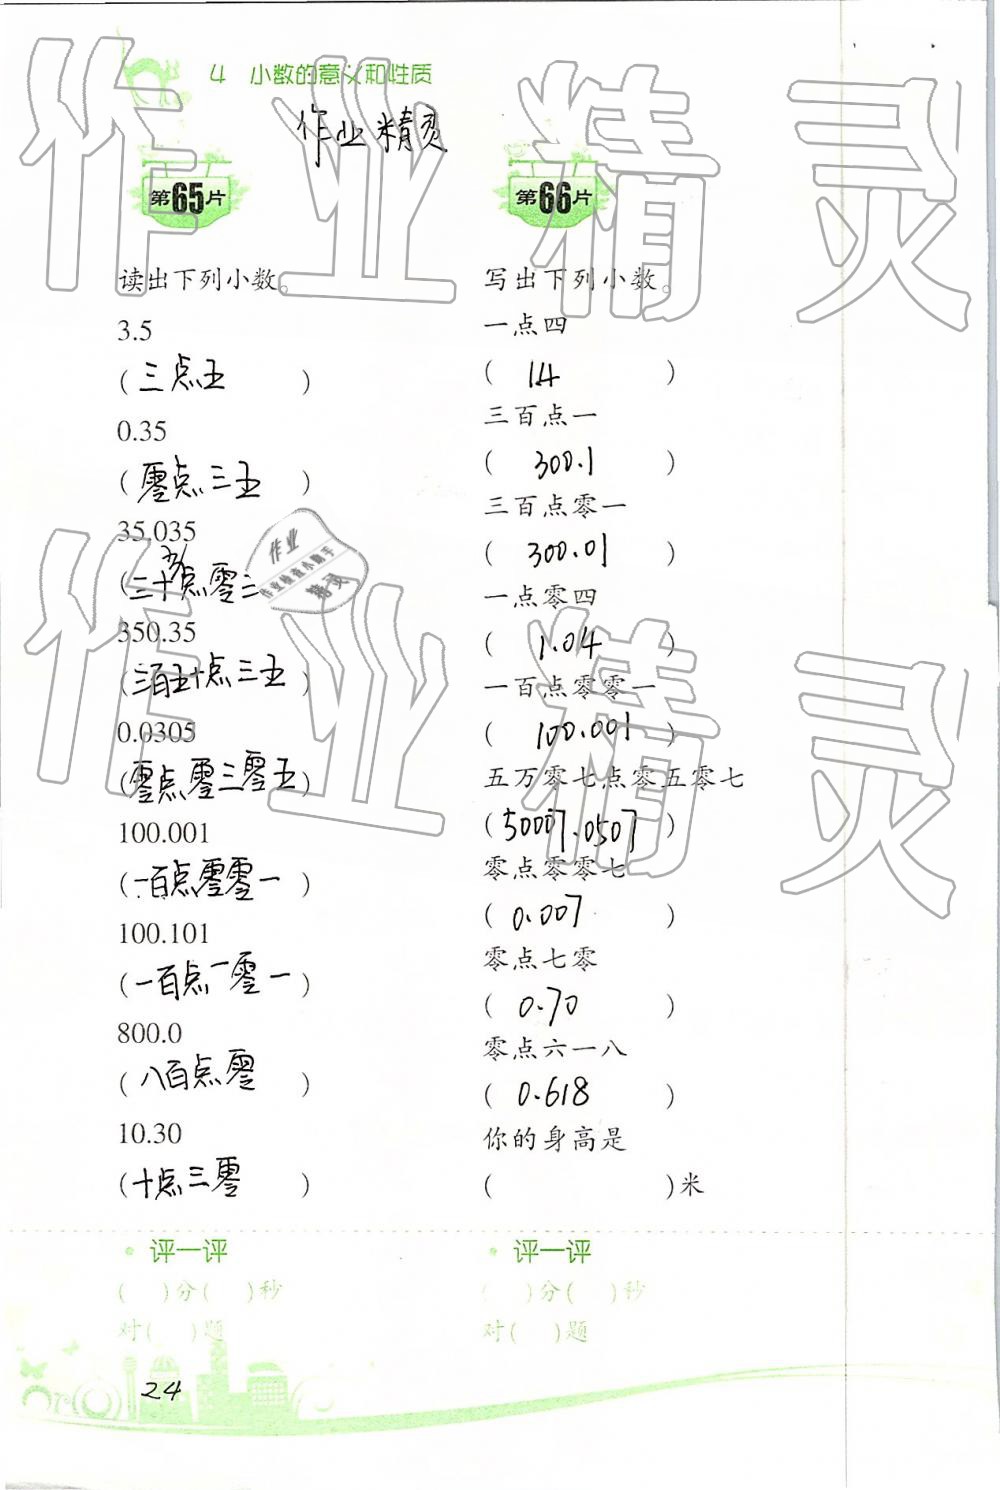 4 小数的意义和性质
作业精灵
第65片
读出下列小数。
3.5
(三点五)
0.35
(零点三五)
35.035
(三十五点零三
350.35
(三百五十点三五)
0.0305
(零点零三零五)
100.001
(一百点零零一)
100.101
(一百点一零一)
800.0
(八百点零)
10.30
(十点三零)
· 评一评
( )分( )秒
对( )题
24
第66片
写出下列小数。
一点四
(1.4)
三百点一
(300.1)
三百点零一
(300.01)
一点零四
(1.04)
一百点零零一
(100.001)
五万零七点零五零七
(50007.0507)
零点零零七
(0.007)
零点七零
(0.70)
零点六一八
(0.618)
你的身高是
( )米
· 评一评
( )分( )秒
对( )题
作业
作业检查小助手
精灵
作业精灵
作业精灵